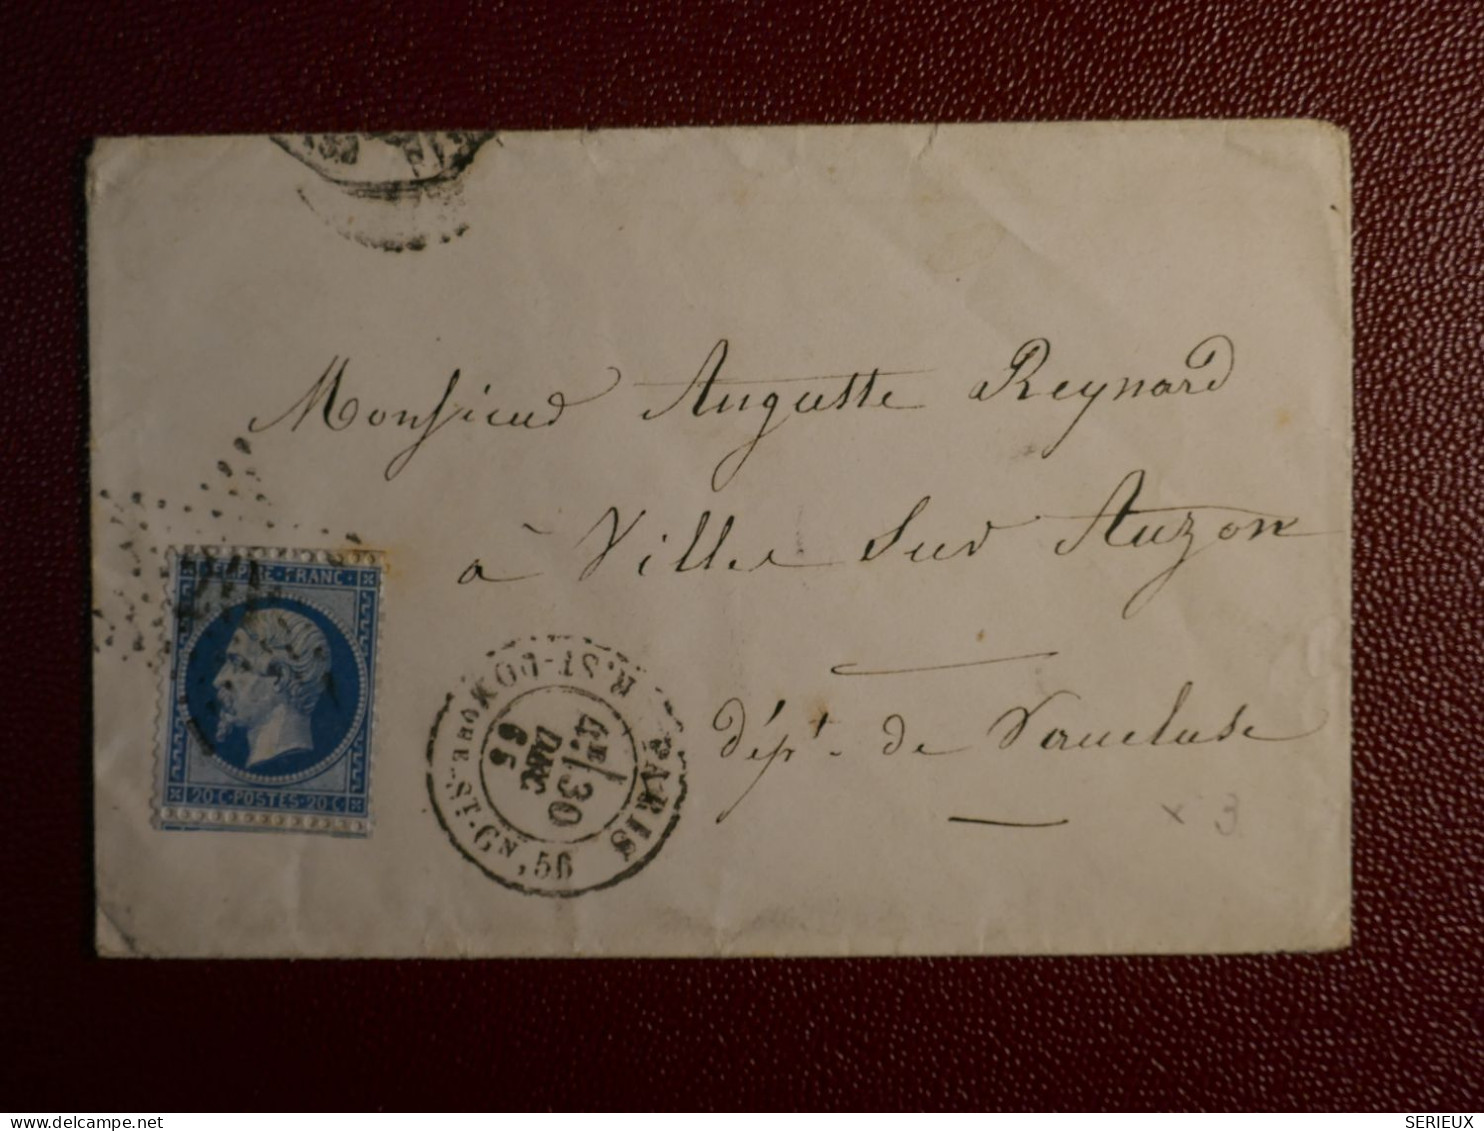 Monsieur Auguste Reynard
à Ville Sur Auzon
dépt. de Vaucluse
× 3
EMPIRE FRANC
20 C POSTES 20 C
PARIS
R. ST-DOMque-ST-Gn, 56
4E
30
DEC
65
delcampe.net
SERIEUX